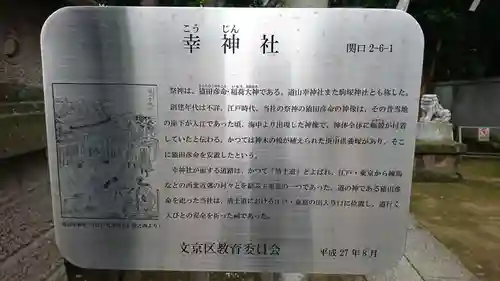 こう じん
幸神社
関口 2-6-1
祭神は、猿田彦命・稲荷大神である。道山幸神社また駒塚神社とも称した。
創建年代は不詳。江戸時代、当社の祭神の猿田彦命の神像は、その昔当地
の崖下が入江であった頃、海中より出現した神像で、神体全体に
していたと伝わる。かつては神木の榎が植えられた があり、そこ
に猿田彦命を安置したという。
幸神社が面する道路は、かつて「清土道」とよばれ、江戸・東京から練馬
などの西北近郊の村々とを結ぶ主要道の一つであった。道の神である猿田彦
命を祀った当社は、清土道における江戸・東京の出入り口に位置し、道行く
人びとの安全を祈った社であった。
文京区教育委員会
平成 27 年 8 月